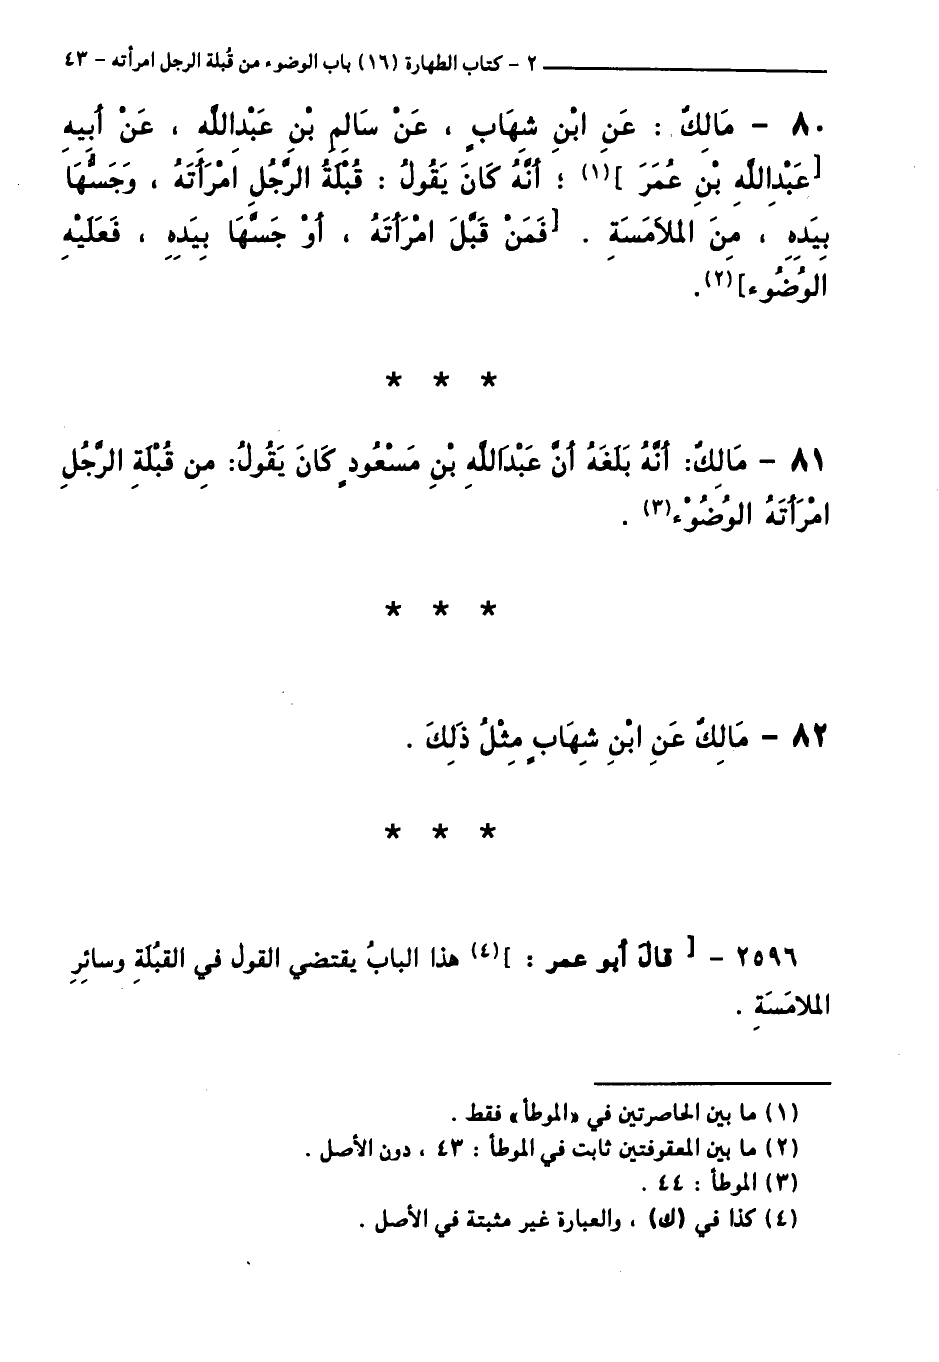 ٢ - كتاب الطهارة (١٦) باب الوضوء من قُبلة الرجل امرأته - ٤٣
٨٠ - مَالِكٌ : عَنِ ابْنِ شِهَابٍ ، عَنْ سَالِمِ بْنِ عَبْدِاللَّهِ ، عَنْ أَبِيهِ
[عَبْدِاللَّهِ بْنِ عُمَرَ ](١) ؛ أَنَّهُ كَانَ يَقُولُ : قُبْلَةُ الرَّجُلِ امْرَأَتَهُ ، وَجَسُّهَا
بِيَدِهِ ، مِنَ الملاَمَسَةِ . [فَمَنْ قَبَّلَ امْرَأَتَهُ ، أَوْ جَسَّهَا بِيَدِهِ ، فَعَلَيْهِ
الوُضُوء](٢).
* * *
٨١ - مَالِكٌ: أَنَّهُ بَلَغَهُ أَنَّ عَبْدَاللَّهِ بْنِ مَسْعُودٍ كَانَ يَقُولُ: مِن قُبْلَةِ الرَّجُلِ
امْرَأَتَهُ الوُضُوْء(٣) .
* * *
٨٢ - مَالِكٌ عَنِ ابْنِ شِهَابٍ مِثْلُ ذَلِكَ .
* * *
٢٥٩٦ - [ قالَ أبو عمر : ](٤) هذا البابُ يقتضي القول في القبُلَةِ وسائِرِ
الملامَسَةِ .
(١) ما بين الحاصرتين في «الموطأ» فقط .
(٢) ما بين المعقوفتين ثابت في الموطأ : ٤٣ ، دون الأصل .
(٣) الموطأ : ٤٤ .
(٤) كذا في (ك) ، والعبارة غير مثبتة في الأصل .